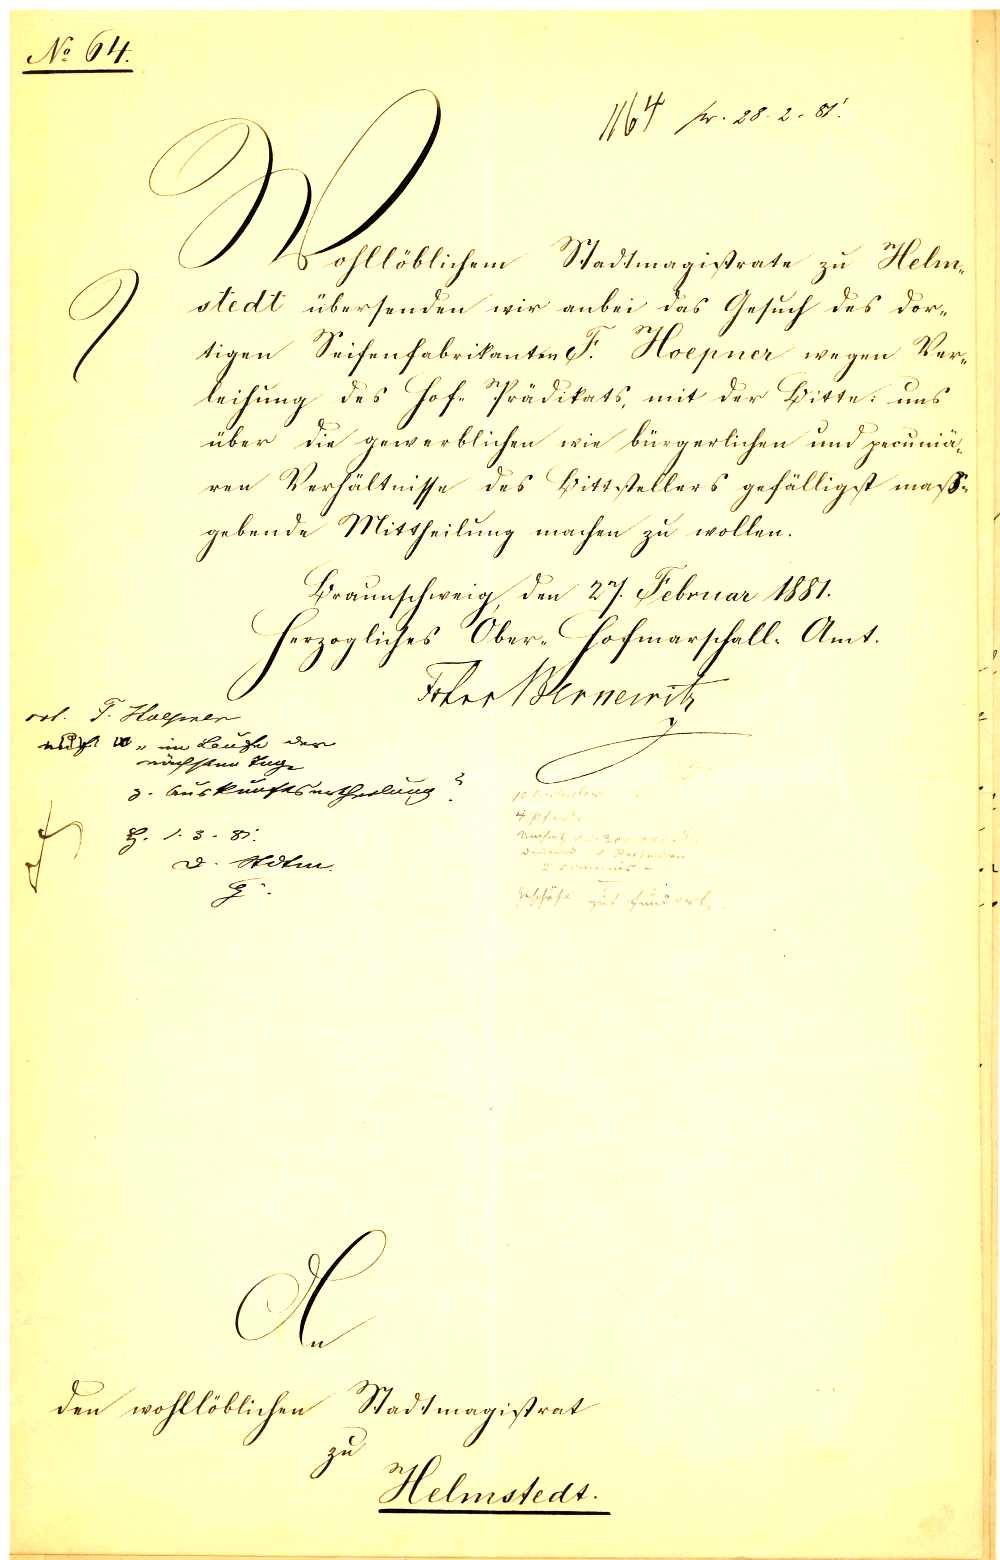 No 64.
1164 pr. 28. 2. 81.
Wohllöblichem Stadtmagistrate zu Helm-
stedt übersenden wir anbei das Gesuch des dor-
tigen Seifenfabrikanten F. Hoepner wegen Ver-
leihung des Hof-Prädikats, mit der Bitte: uns
über die gewerblichen wie bürgerlichen und pecuniä-
ren Verhältnisse des Bittstellers gefälligst maß-
gebende Mittheilung machen zu wollen.
Braunschweig, den 27. Februar 1881.
Herzogliches Ober-Hofmarschall-Amt.
Bernewitz
F. Hoepner
im Laufe der
nächsten Tage
z. Auskunftsertheilung
H. 1. 3. 81.
D. Stdtm.
4 Pferde
Geschäft gut
An
den wohllöblichen Stadtmagistrat
zu
Helmstedt.